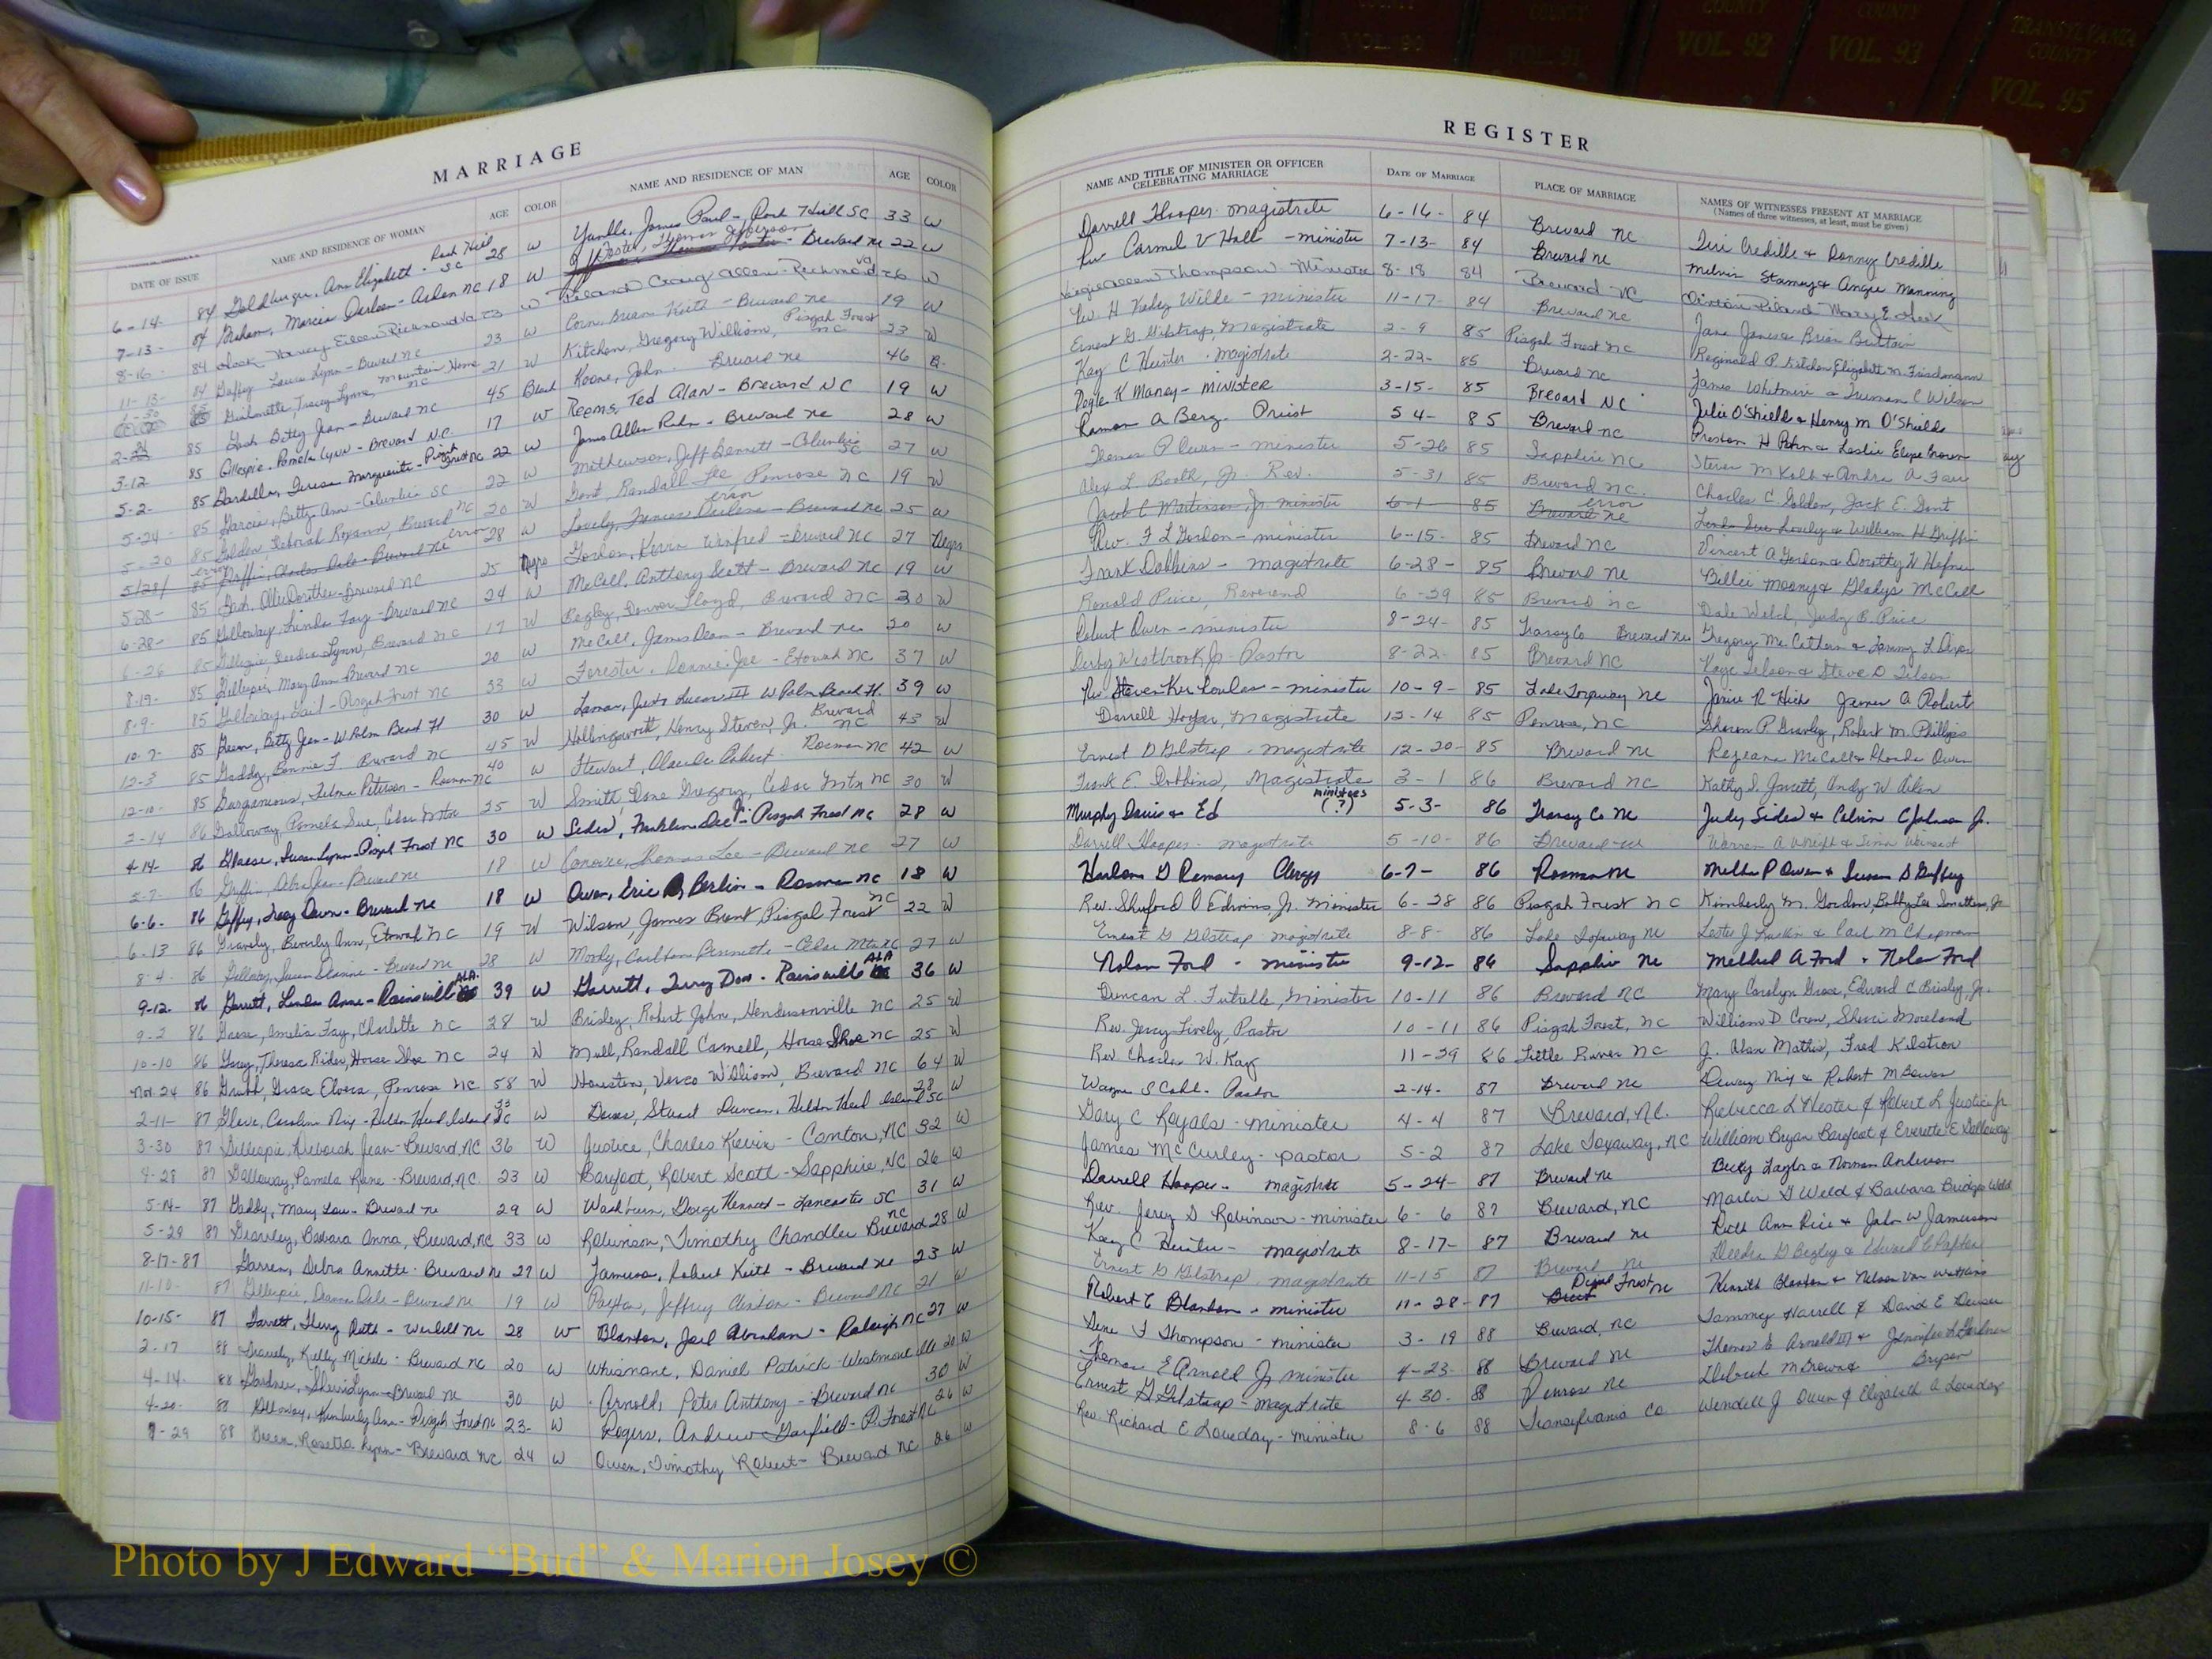 COUNTY
VOL. 90
COUNTY
VOL. 91
COUNTY
VOL. 92
COUNTY
VOL. 93
TRANSYLVANIA
COUNTY
VOL. 95
MARRIAGE
DATE OF ISSUE NAME AND RESIDENCE OF WOMAN AGE COLOR NAME AND RESIDENCE OF MAN AGE COLOR
6-14- 84 Goldburger, Ann Elizabeth - Rock Hill SC 28 W James Paul - Rock Hill SC 33 W
7-13- 84 Graham, Marcia Darleen - Arden NC 18 W Foster, Thomas Jefferson - Brevard NC 22 W
8-16- 84 Nancy Eileen Richmond Va 23 W Craig Allen - Richmond Va 26 W
11-13- 84 Gaffey Laura Lynn - Brevard NC 23 W Corn, Brian Keith - Brevard NC 19 W
Tracey Lynne, Mountain Home NC 21 W Kitchen, Gregory William, Pisgah Forest NC 23 W
85 Gash Betty Jean - Brevard NC 45 Black Koone, John - Brevard NC 46 B-
3-12 85 Gillespie, Pamela Lynn - Brevard N.C. 17 W Reems, Ted Alan - Brevard NC 19 W
5-2- 85 Teresa Marguerite - Pisgah Forest NC 22 W James Allen - Brevard NC 28 W
5-24- 85 Garcia, Betty Ann - Columbia SC 22 W Mathewson, Jeff - Columbia SC 27 W
5-20 85 Golden Deborah Roxann, Brevard NC 20 W Gant, Randall Lee, Penrose NC 19 W
5/28/ 85 error Charles Dale - Brevard NC error 28 W Lovely, Frances Darlene - Brevard NC error 25 W
5-28- 85 Gash, Ollie Dorothea - Brevard NC 25 Negro Gordon, Kevin Winfred - Brevard NC 27 Negro
6-28- 85 Galloway, Linda Faye - Brevard NC 24 W McCall, Anthony Scott - Brevard NC 19 W
6-26 85 Gillespie Deedra Lynn, Brevard NC 17 W Lloyd, Brevard NC 20 W
8-19- 85 Gillespie, Mary Ann Brevard NC 20 W McCall, James Dean - Brevard NC 20 W
8-9- 85 Galloway, Gail - Pisgah Forest NC 33 W Forester, Ronnie Joe - Etowah NC 37 W
10-7- 85 Green, Betty Jean - W Palm Beach Fl 30 W Lamar, III W Palm Beach Fl. 39 W
12-3 85 Gaddy, Bonnie F. Brevard NC 45 W Hollingsworth, Henry Steven, Jr. Brevard NC 43 W
12-10- 85 Peterson - Rosman NC 40 W Stewart, Claude Robert Rosman NC 42 W
2-14 86 Galloway, Pamela Sue, Cedar Mtn 25 W Smith, Dane Gregory, Cedar Mtn NC 30 W
4-14- 86 Susan Lynn - Pisgah Forest NC 30 W Sides, Franklin Dee Jr - Pisgah Forest NC 28 W
5-7- 86 Griffin, Debra Jean - Brevard NC 18 W Conover, Thomas Lee - Brevard NC 27 W
6-6- 86 Guffey, Tracy Dawn - Brevard NC 18 W Owen, Eric Berlin - Rosman NC 18 W
6-13 86 Gravely, Beverly Ann, Etowah NC 19 W Wilson, James Brent, Pisgah Forest NC 22 W
8-4- 86 Galloway, Susan Dianne - Brevard NC 28 W Moody, Carlton Bennett - Cedar Mtn NC 27 W
9-12- 86 Garrett, Linda Anne - Rainsville ALA. 39 W Garrett, Terry Don - Rainsville ALA 36 W
9-2 86 Goose, Amelia Fay, Charlotte NC 28 W Brisley, Robert John, Hendersonville NC 25 W
10-10 86 Gray, Theresa Rider, Horse Shoe NC 24 W Mull, Randall Carnell, Horse Shoe NC 25 W
Nov. 24 86 Grubb, Grace Elvera, Penrose NC 58 W Houston, Verco William, Brevard NC 64 W
2-11- 87 Caroline Nix - Hilton Head Island SC 33 W Stuart Duncan, Hilton Head Island SC 28 W
3-30 87 Gillespie, Deborah Jean - Brevard, NC 36 W Justice, Charles Kevin - Canton, NC 32 W
4-28 87 Galloway, Pamela Rane - Brevard, NC. 23 W Barefoot, Robert Scott - Sapphire, NC 26 W
5-14- 87 Gaddy, Mary Lou - Brevard NC 29 W Washburn, George Kennard - Lancaster SC 31 W
5-29 87 Gravley, Barbara Anna, Brevard, NC 33 W Robinson, Timothy Chandler Brevard NC 28 W
8-17-87 Garren, Debra Annette - Brevard NC 27 W Jamerson, Robert Keith - Brevard NC 23 W
11-10- 87 Gillespie, Deanna Dale - Brevard NC 19 W Payton, Jeffrey Clinton - Brevard NC 21 W
10-15- 87 Garrett, Sherry Ruth - Wendell NC 28 W Blanton, Joel Abraham - Raleigh NC 27 W
2-17 88 Gravely, Kelly Michele - Brevard NC 20 W Whisnant, Daniel Patrick - Westmont 20 W
4-14- 88 Gardner, Sherri Lynn - Brevard NC 30 W Arnold, Peter Anthony - Brevard NC 30 W
4-20- 88 Galloway, Kimberly Ann - Pisgah Forest NC 23- W Rogers, Andrew Garfield - P. Forest NC 26 W
7-29 88 Green, Rosetta Lynn - Brevard NC 24 W Owen, Timothy Robert - Brevard NC 26 W
REGISTER
NAME AND TITLE OF MINISTER OR OFFICER CELEBRATING MARRIAGE DATE OF MARRIAGE PLACE OF MARRIAGE NAMES OF WITNESSES PRESENT AT MARRIAGE
(Names of three witnesses, at least, must be given)
Darrell Hooper - Magistrate 6-16- 84 Brevard NC Teri Credille & Danny Credille
Rev Carmel V Hall - minister 7-13- 84 Brevard NC Melvin Stamey & Angie Manning
Thompson - Minister 8-18 84 Brevard NC Mary E
Rev. H Kaley Wilde - minister 11-17- 84 Brevard NC Jane Jones & Brian Britton
Ernest G. Gilstrap, Magistrate 2-9 85 Pisgah Forest NC Reginald P. Kitchen, Elizabeth M. Friedmann
Kay C Hunter - magistrate 2-22- 85 Brevard NC James Whitmire & Truman C Wilson
Doyle K Maney - minister 3-15- 85 Brevard NC Julie O'Shields & Henry M O'Shields
Ramon A Berg - Priest 5 4- 85 Brevard NC Preston H & Leslie Elayne Brown
Thomas P Owen - minister 5-26 85 Sapphire NC Steven M Kolb & Andra A
Alex L. Booth, Jr. Rev. 5-31 85 Brevard NC. Charles C Golden, Jack E. Gant
Jacob C Martinson, Jr. minister 6-1 85 Brevard NC error Linda Sue Lovely & William H Griffin
Rev. F L Gordon - minister 6-15- 85 Brevard NC Vincent A Gordon & Dorothy W Hefner
Frank Dobbins - magistrate 6-28- 85 Brevard NC Billie Mooney & Gladys McCall
Ronald Price, Reverend 6-29 85 Brevard NC Dale Welch, Judy B. Price
Robert Owen - minister 8-24- 85 Transy Co Brevard NC Gregory McCathern & Tammy L
Derby Westbrook Jr. Pastor 8-22- 85 Brevard NC Kaye Tilson & Steve D Tilson
Rev Steven Ker - minister 10-9- 85 Lake Toxaway NC Janice R Hicks James A Roberts
Darrell Hooper, Magistrate 12-14 85 Penrose, NC Sharon P. Gravley, Robert M. Phillips
Ernest D Gilstrap - magistrate 12-20- 85 Brevard NC Rejeana McCall & Rhonda Owen
Frank E. Dobbins, Magistrate 3-1 86 Brevard NC Kathy S. Jarrett, Andy W. Arlen
Murphy Davis & Ed ministers (?) 5-3- 86 Transy Co NC Judy Sides & Calvin C Johnson Jr.
Darrell Hooper - magistrate 5-10- 86 Brevard NC Warren A Wright &
Harlan D Ramsey Clergy 6-7- 86 Rosman NC P Owen & Susan S Guffey
Rev. Shuford O Edwins, Jr. Minister 6-28 86 Pisgah Forest NC Kimberly M. Gordon, Bobby Lee
Ernest G Gilstrap - magistrate 8-8- 86 Lake Toxaway NC Lester J & Carl M Chapman
Nolan Ford - minister 9-12- 86 Sapphire NC Mildred A Ford & Nolan Ford
Duncan L. Futrelle, Minister 10-11 86 Brevard NC Mary Carolyn Goose, Edward C Brisley, Jr.
Rev. Jerry Lively, Pastor 10-11 86 Pisgah Forest, NC William D Coren, Sherri Moreland
Rev. Charles W. Kay 11-29 86 Little River NC J. Alan Mathis, Fred Kilstrom
Wayne S Cahl - Pastor 2-14- 87 Brevard NC Dewey Nix & Robert M
Gary C Royals - minister 4-4 87 Brevard, NC. Rebecca L Hester & Robert L Justice Jr
James McCurley - pastor 5-2 87 Lake Toxaway, NC William Bryan Barefoot & Everette E Galloway
Darrell Hooper - magistrate 5-24- 87 Brevard NC Becky Taylor & Norman Anderson
Rev. Jerry D Robinson - minister 6-6 87 Brevard, NC Marler G Weld & Barbara Bridges Weld
Kay C Hunter - magistrate 8-17- 87 Brevard NC Ruth Ann Rice & John W Jamerson
Ernest G Gilstrap - magistrate 11-15 87 Brevard NC Deedra G Begley &
Robert C Blanton - minister 11-28-87 Pisgah Forest NC Kenneth Blanton & Nelson Van Watkins
Gene F Thompson - minister 3-19 88 Brevard, NC Tammy Harrell & David E
Thomas E Arnold Jr minister 4-23- 88 Brevard NC Thomas E Arnold III & Jennifer L Gardner
Ernest G Gilstrap - magistrate 4-30- 88 Penrose NC Deborah M Brown &
Rev. Richard E Loveday - minister 8-6 88 Transylvania Co Wendell J Owen & Elizabeth A Loveday
Photo by J Edward "Bud" & Marion Josey ©